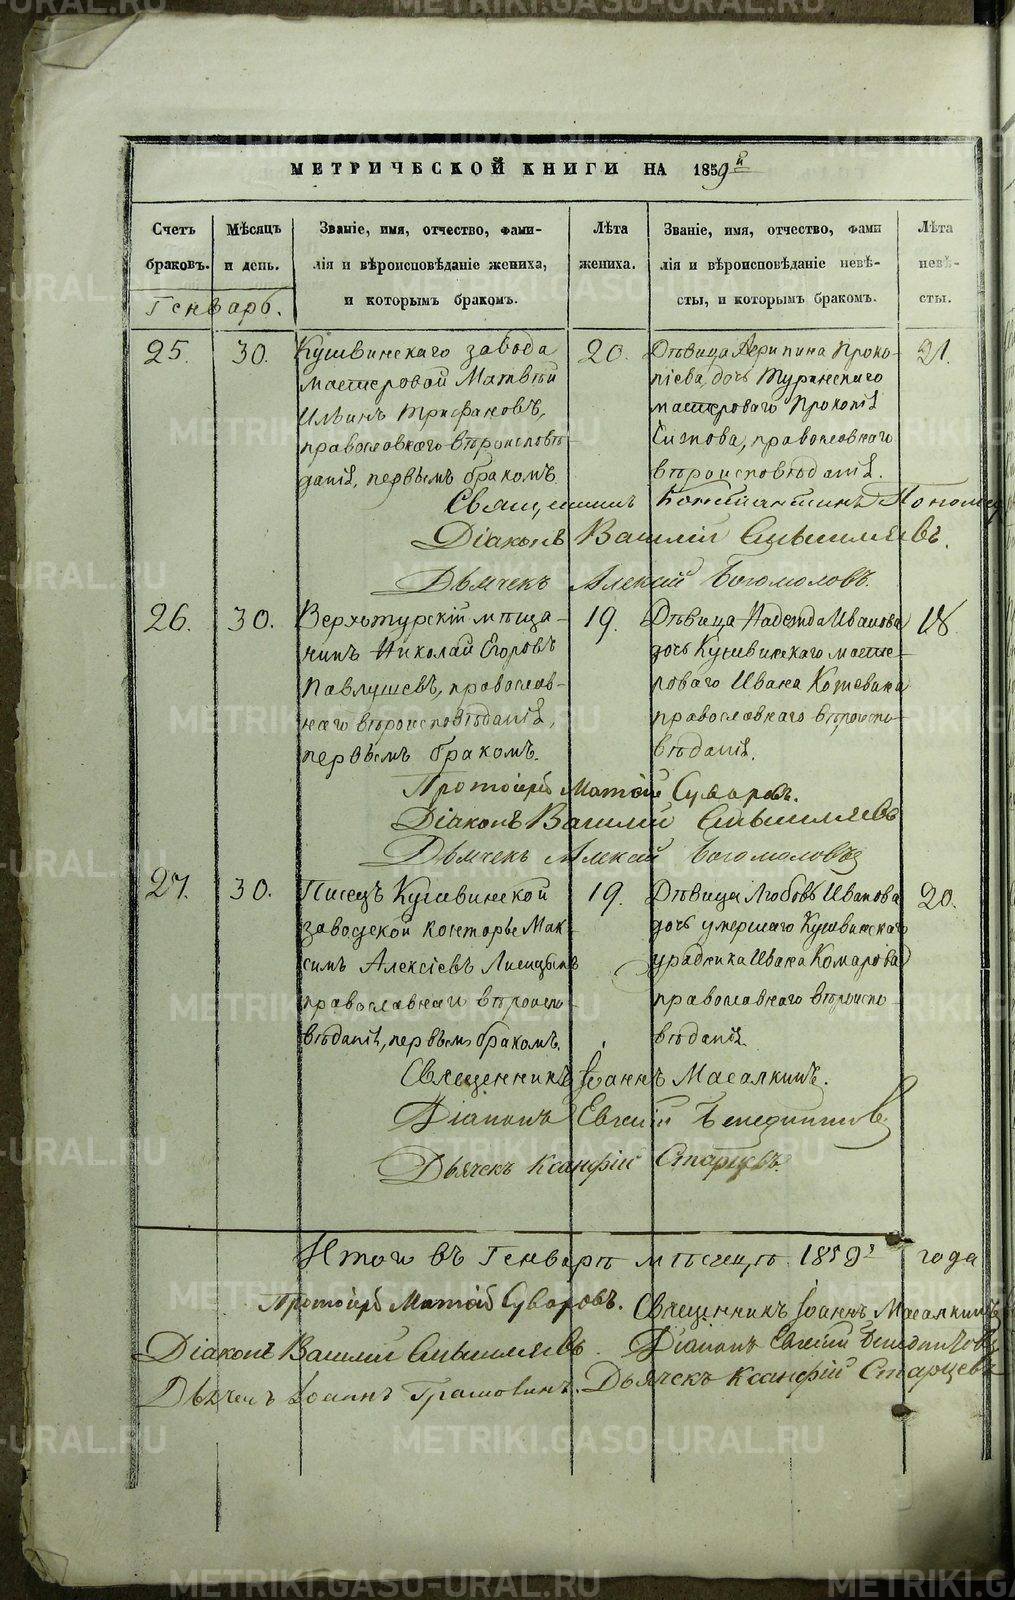 МЕТРИЧЕСКОЙ КНИГИ НА 1859й
Счетъ браковъ.
Мѣсяцъ и день.
Званіе, имя, отчество, фами-
лія и вѣроисповѣданіе жениха,
и которымъ бракомъ.
Лѣта
жениха.
Званіе, имя, отчество, фами
лія и вѣроисповѣданіе невѣ-
сты, и которымъ бракомъ.
Лѣта
невѣ-
сты.
Генварь.
25.
30.
Кушвинскаго завода
мастеровой Матвѣй
Ильинъ Трифановъ,
православнаго вѣроисповѣ
данія, первымъ бракомъ.
20.
Дѣвица Агрипина Проко-
піева, дочь Туринскаго
мастероваго Прокопія
православнаго
вѣроисповѣданія.
21.
Священникъ Константинъ
Діаконъ Василій
Дьячекъ Алексѣй Богомоловъ
26.
30.
Верхотурскій мѣща-
нинъ Николай Егоровъ
Павлушевъ, православ-
наго вѣроисповѣданія,
первымъ бракомъ.
19.
Дѣвица Надежда Иванова
дочь Кушвинскаго масте-
роваго Ивана
православнаго вѣроиспо-
вѣданія.
18.
Протоіерей Матѳій Суворовъ.
Діаконъ Василій
Дьячекъ Алексѣй Богомоловъ
27.
30.
Писецъ Кушвинской
заводской конторы Мак-
симъ Алексіевъ
православнаго вѣроиспо-
вѣданія, первымъ бракомъ.
19.
Дѣвица Любовь Иванова
дочь умершаго Кушвинскаго
урядника Ивана Комарова
православнаго вѣроиспо-
вѣданія
20.
Священникъ Іоаннъ Масалкинъ.
Діаконъ Евгеній
Дьячекъ Ксанфій Старцевъ.
Итого въ Генварѣ мѣсяцѣ 1859 года
Протоіерей Матѳій Суворовъ. Священникъ Іоаннъ Масалкинъ
Діаконъ Василій Діаконъ Евгеній
Дьячекъ Іоаннъ Дьячекъ Ксанфій Старцевъ
METRIKI.GASO-URAL.RU